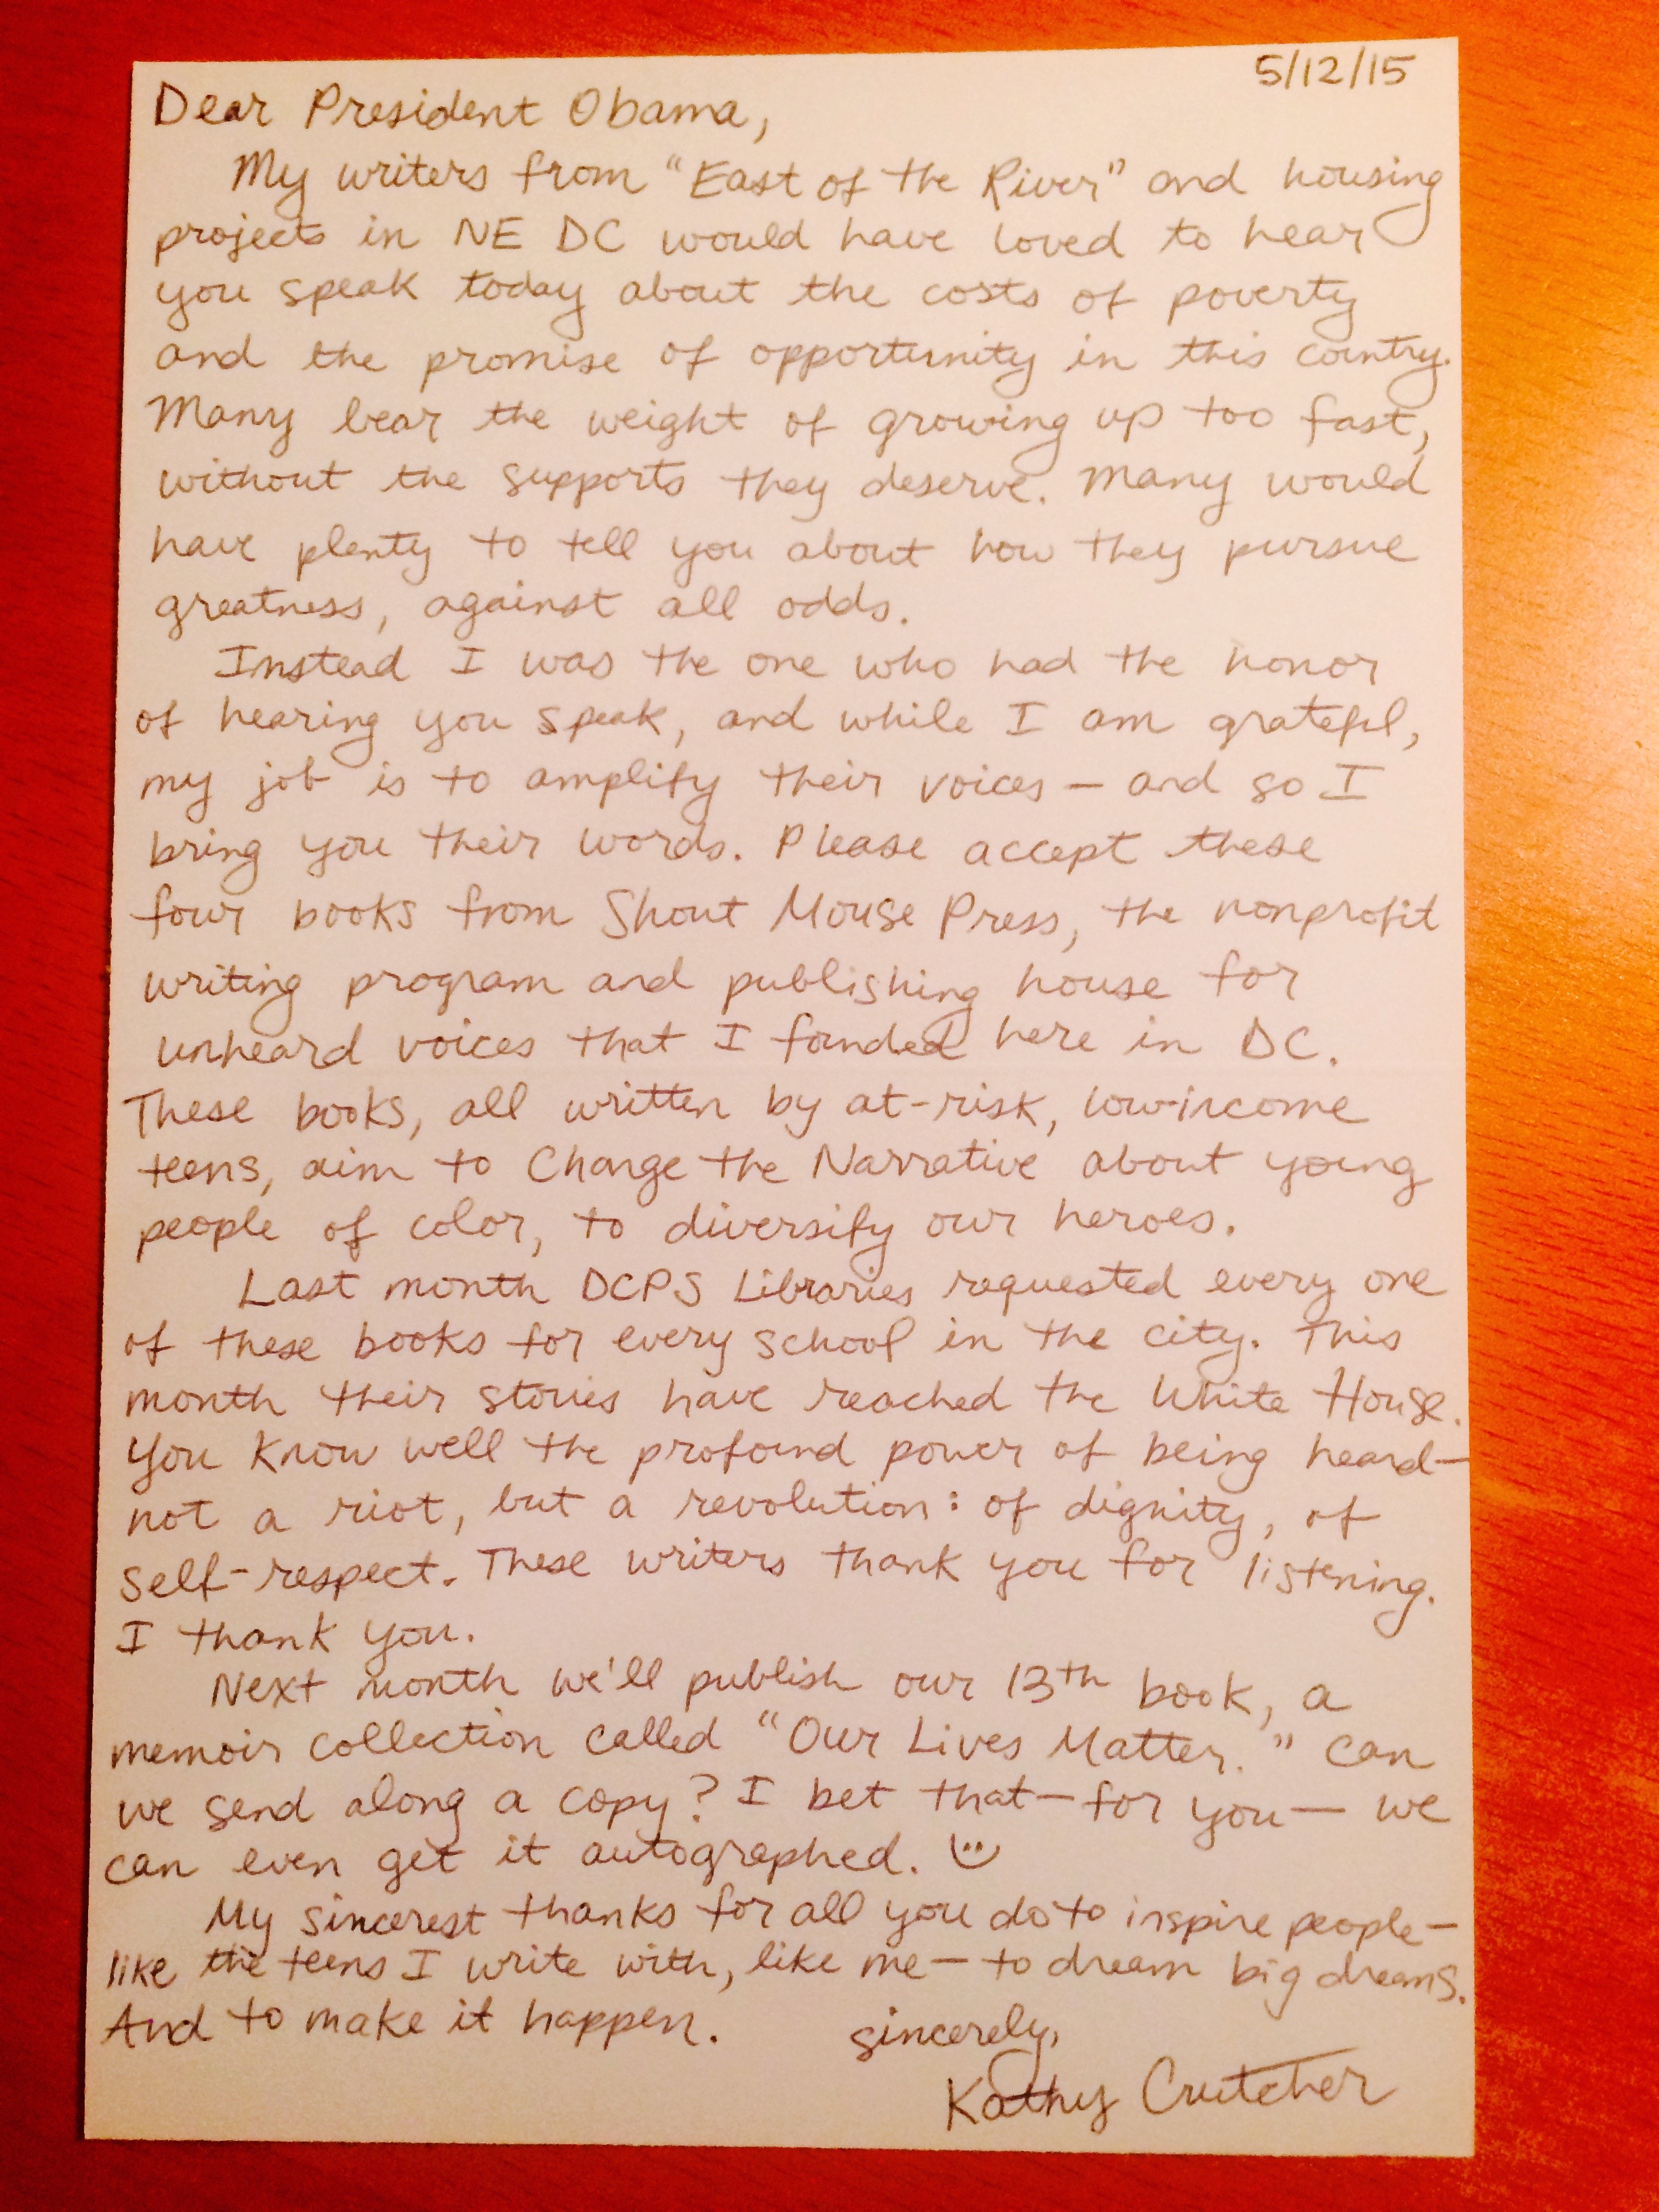 5/12/15
Dear President Obama,
My writers from "East of the River" and housing
projects in NE DC would have loved to hear
you speak today about the costs of poverty
and the promise of opportunity in this country.
Many bear the weight of growing up too fast,
without the supports they deserve. Many would
have plenty to tell you about how they pursue
greatness, against all odds.
Instead I was the one who had the honor
of hearing you speak, and while I am grateful,
my job is to amplify their voices – and so I
bring you their words. Please accept these
four books from Shout Mouse Press, the nonprofit
writing program and publishing house for
unheard voices that I founded here in DC.
These books, all written by at-risk, low-income
teens, aim to Change the Narrative about young
people of color, to diversify our heroes.
Last month DCPS Libraries requested every one
of these books for every school in the city. This
month their stories have reached the White House.
You know well the profound power of being heard—
not a riot, but a revolution: of dignity, of
self-respect. These writers thank you for listening.
I thank you.
Next month we'll publish our 13th book, a
memoir collection called "Our Lives Matter." Can
we send along a copy? I bet that—for you— we
can even get it autographed. 🙂
My sincerest thanks for all you do to inspire people—
like the teens I write with, like me— to dream big dreams.
And to make it happen.
Sincerely,
Kathy Crutcher